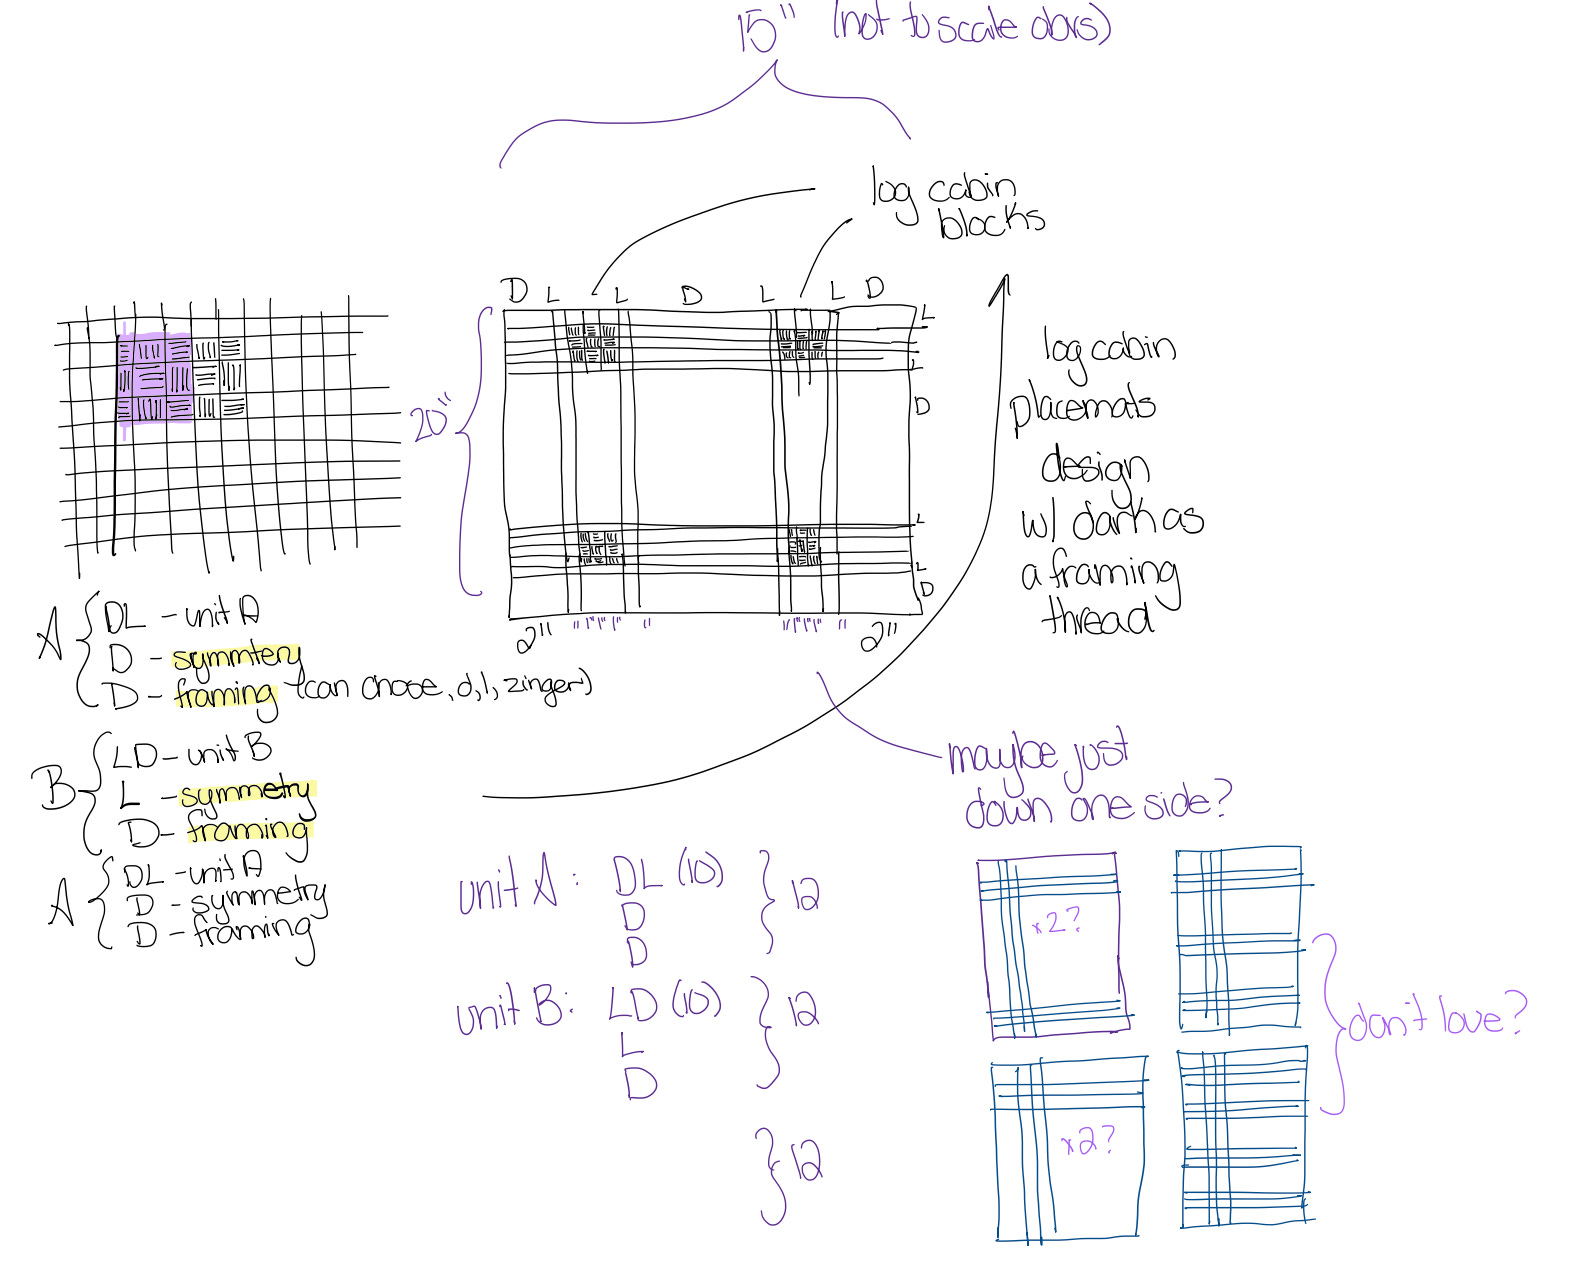 15" (not to scale obvs)
log cabin
blocks
D L L D L L D
L
L
D
L
L
D
20"
2" " 1" 1" 1" " " 1" 1" 1" " 2"
log cabin
placemats
design
w/ dark as
a framing
thread
A { DL - unit A
D - symmtery
D - framing (can chose, d, l, zinger)
B { LD - unit B
L - symmetry
D - framing
A { DL - unit A
D - symmetry
D - framing
maybe just
down one side?
unit A: DL (10) } 12
D
D
unit B: LD (10) } 12
L
D
} 12
x2?
x2?
don't love?